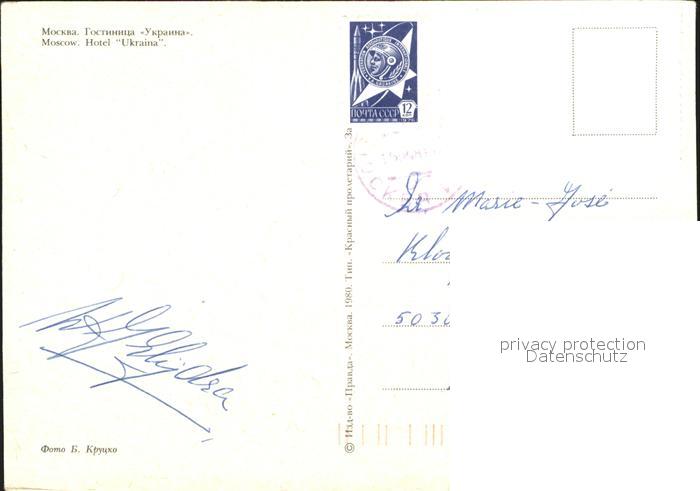 Москва. Гостиница «Украина».
Moscow. Hotel "Ukraina".
ПОЧТА СССР
12
1976
© Изд-во «Правда». Москва. 1980. Тип. «Красный пролетарий». За
Marie-José
5030
privacy protection
Datenschutz
Фото Б. Круцко